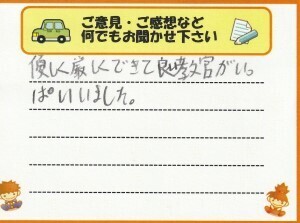 ご意見・ご感想など
何でもお聞かせ下さい
優しく厳しくできて良い教官がいっ
ぱいいました。